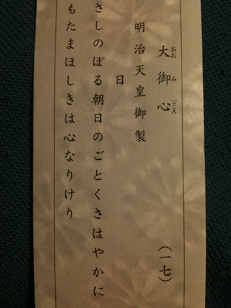 大御心
おおみごころ
(一七)
明治天皇御製
日
さしのぼる朝日のごとくさはやかに
もたまほしきは心なりけり